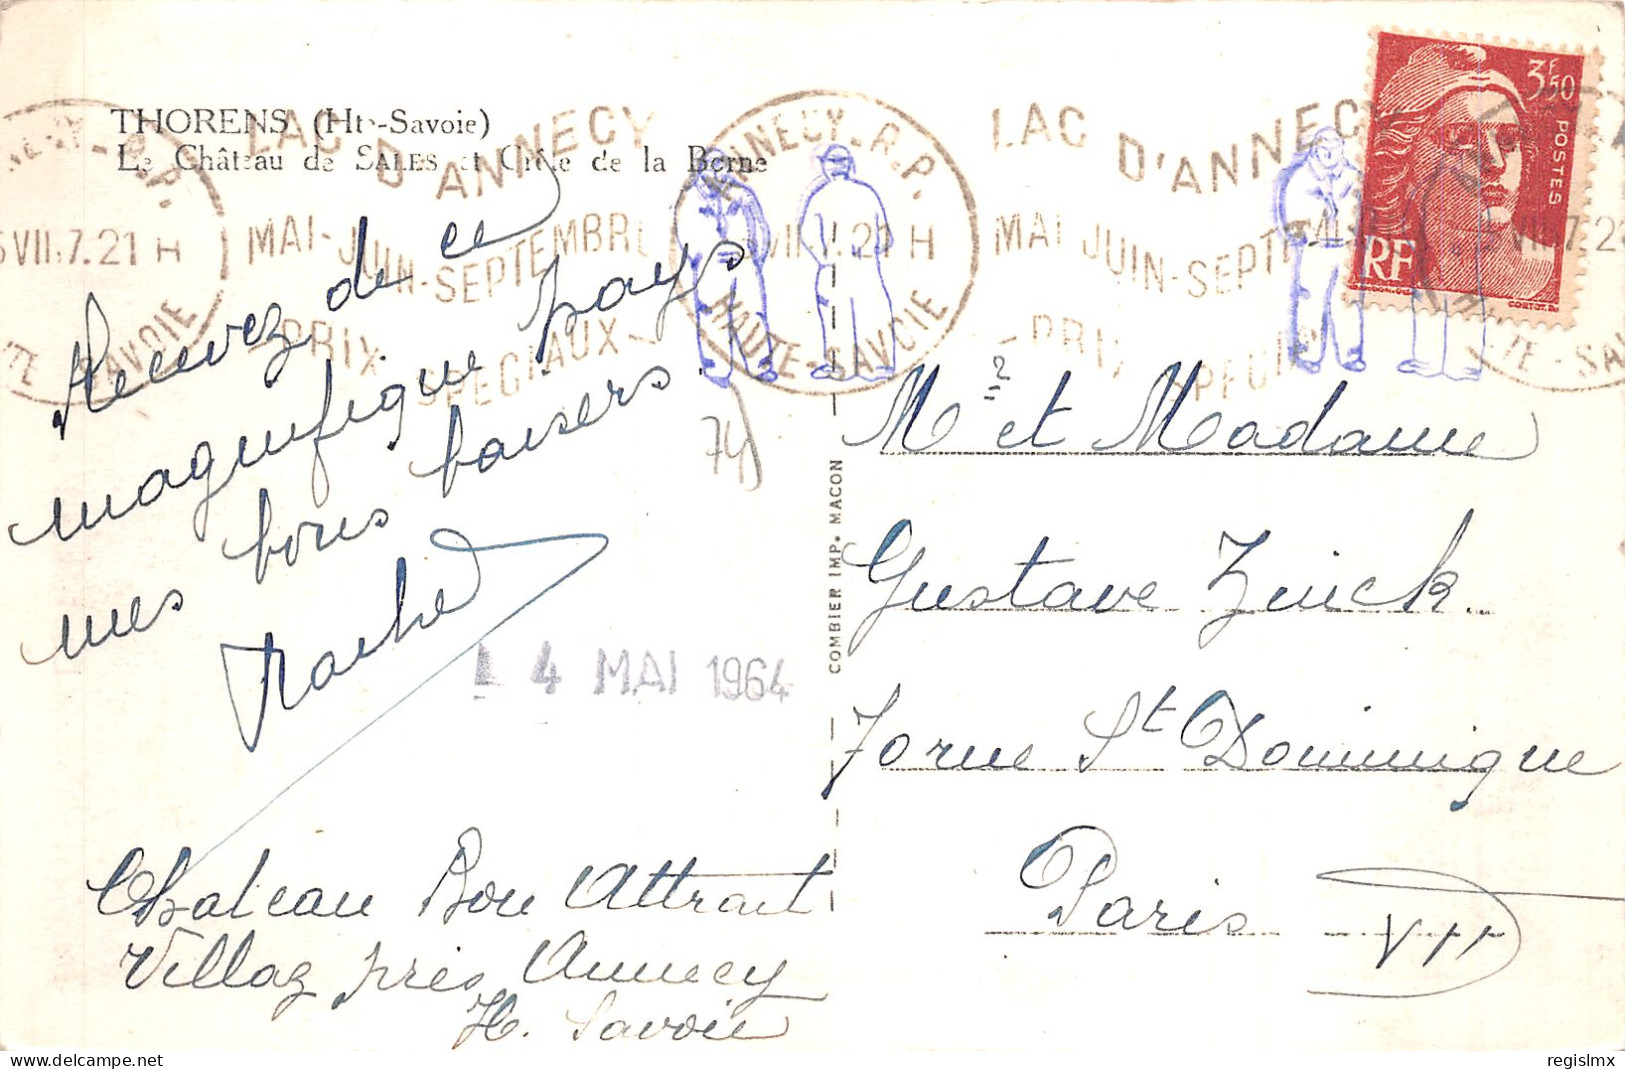 THORENS (Hte-Savoie)
Le Château de SALES et Crête de la Berne
LAC D'ANNECY
MAI-JUIN-SEPTEMBRE
PRIX SPECIAUX
ANNECY R.P.
VII 21 H
HAUTE-SAVOIE
LAC D'ANNECY
MAI JUIN-SEPTE
PRIX SPECIAUX
3F50
POSTES
RF
Recevez de ce
magnifique pays
mes bons baisers.
74
4 MAI 1964
Chateau Bon Attrait
Villaz près Annecy
H. Savoie
COMBIER IMP. MACON
Mr et Madame
Gustave Zuick
70 rue St Dominique
Paris VII
regislmx